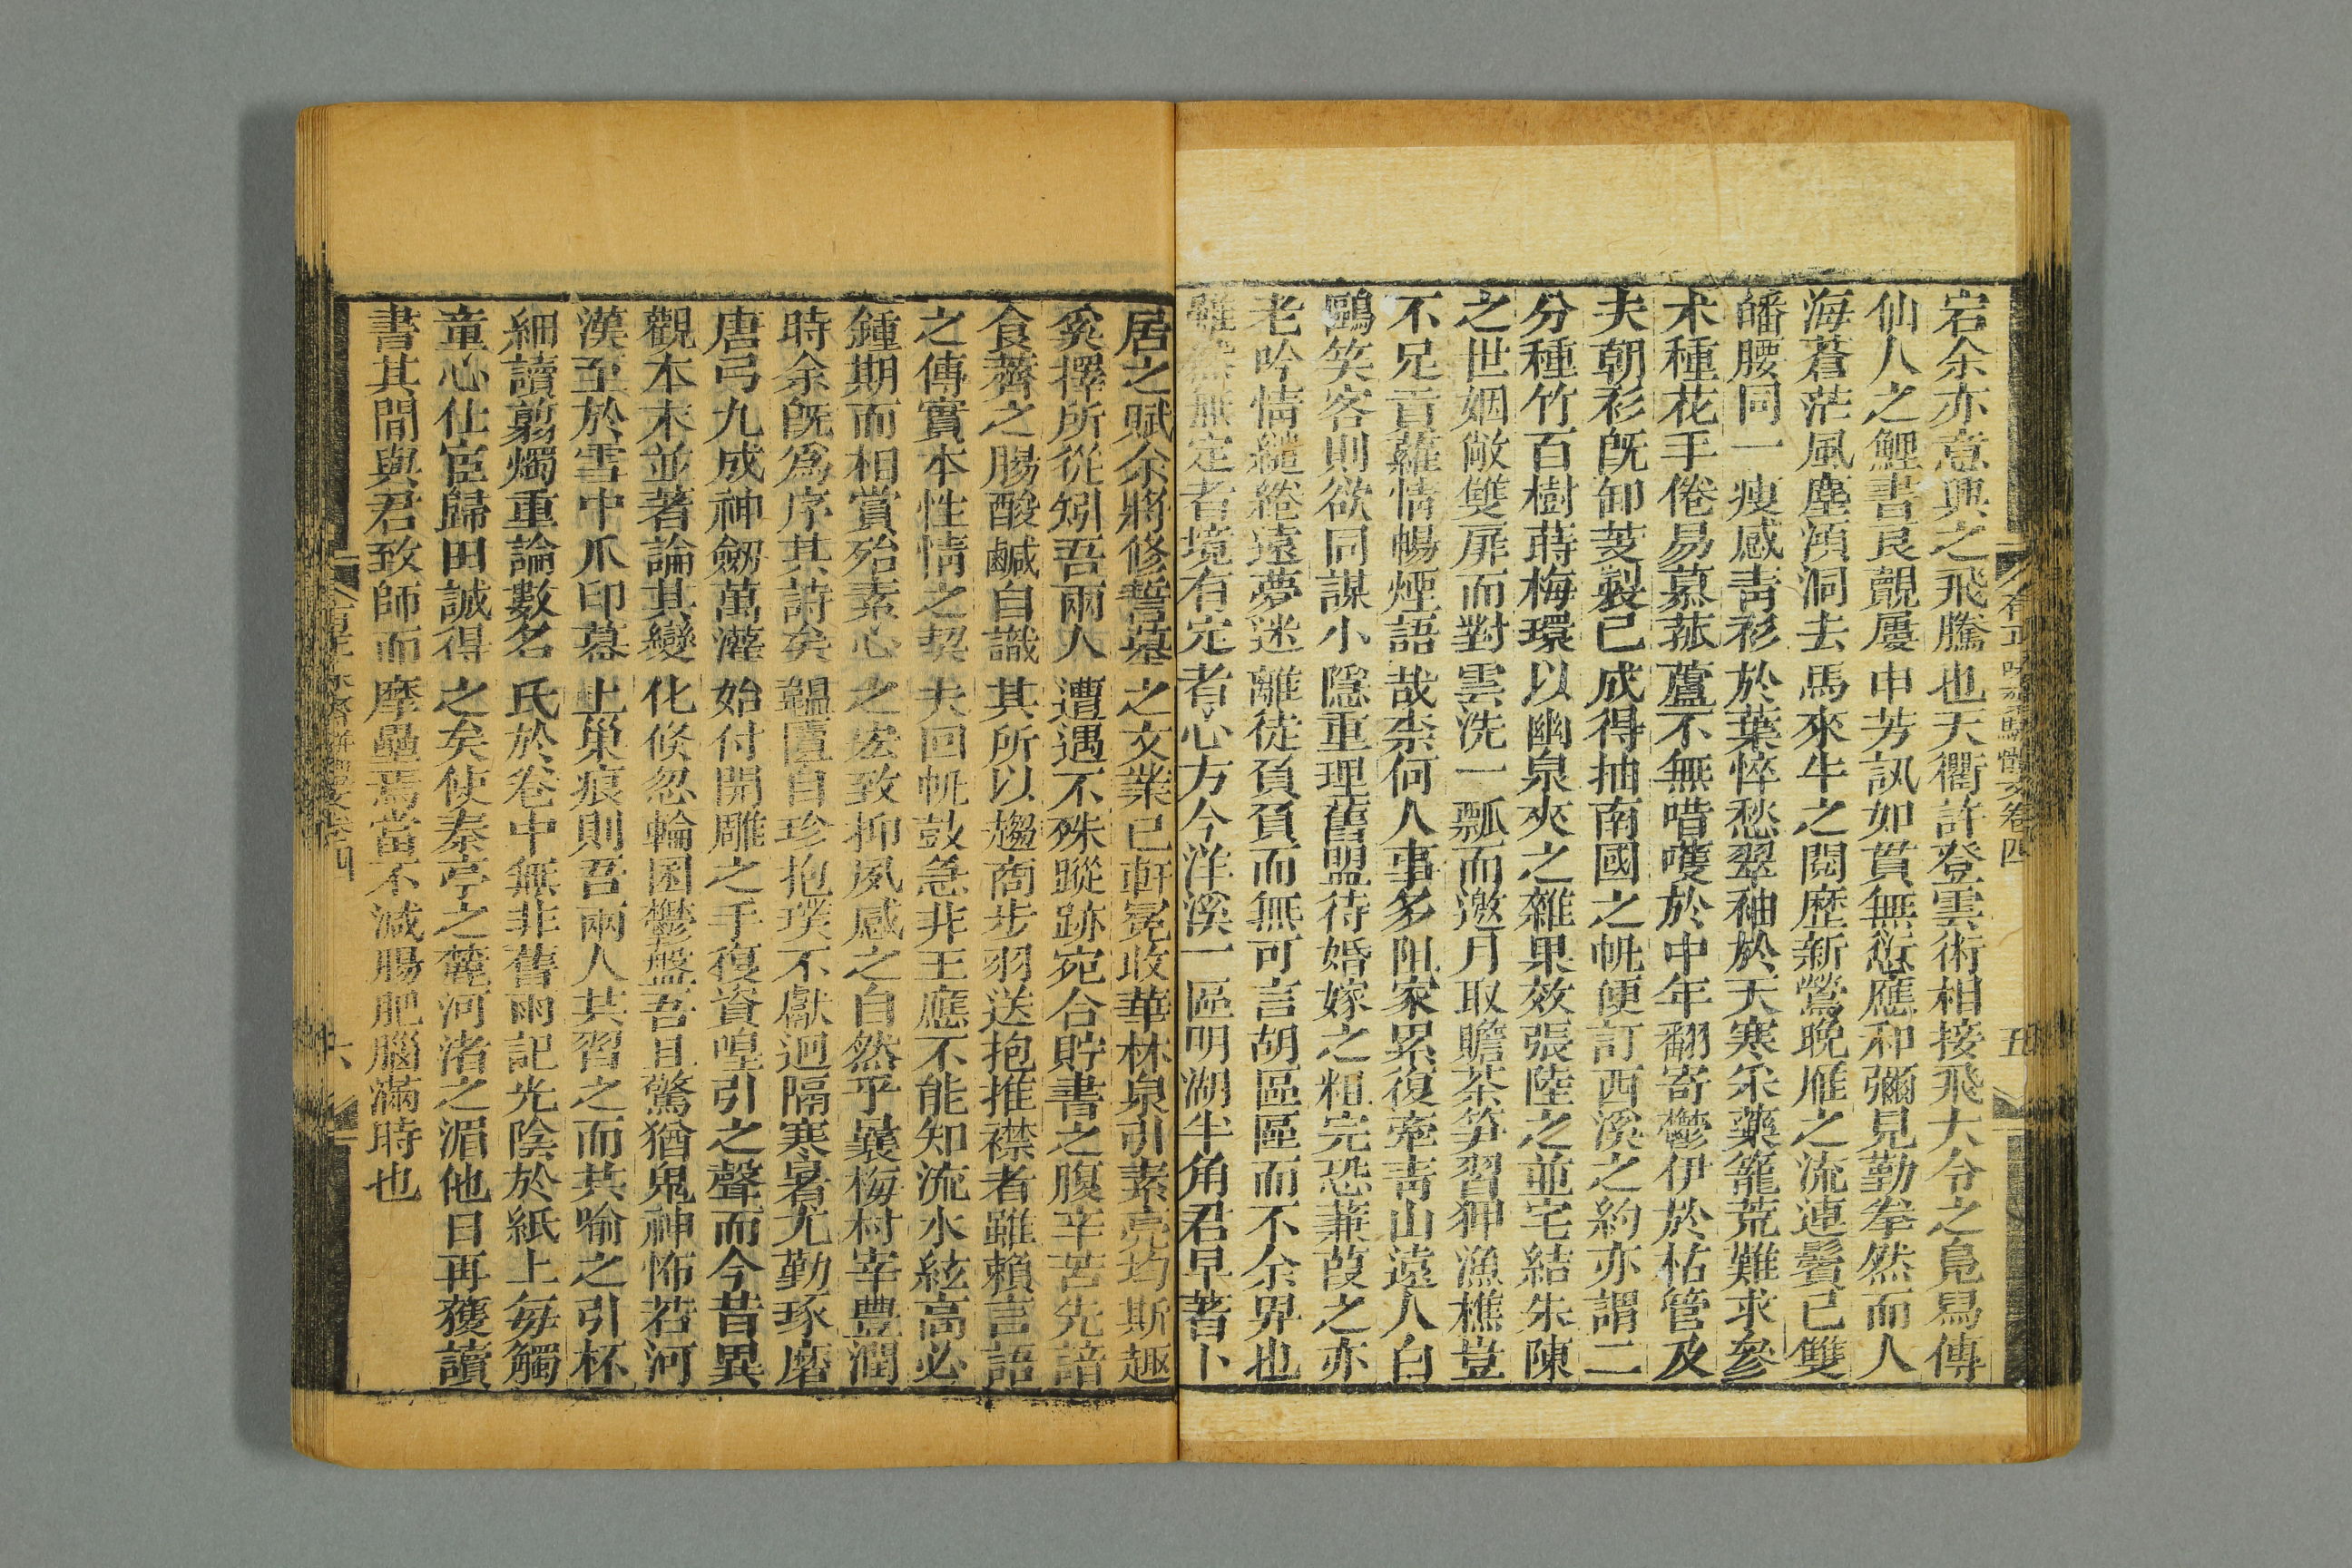 宕余亦意興之飛騰也天衢許登雲術相接飛大令之鳧舄傳
仙人之鯉書良覿屢申芳訊如貫無愆應和彌見勤拳然而人
海蒼茫風塵澒洞去馬來牛之閱歷新鶯晚雁之流連鬢已雙
皤腰同一瘦感靑衫於葉悴愁翠袖於天寒采藥籠荒難求參
朮種花手倦易慕菰蘆不無唶嚄於中年翻寄鬱伊於枯管及
夫朝衫旣卸芰製已成得抽南國之帆便訂西溪之約亦謂二
分種竹百樹蒔梅環以幽泉夾之雜果效張陸之並宅結朱陳
之世姻敞雙扉而對雲洗一瓢而邀月取贍茶笋習狎漁樵豈
不足賁蘿情暢煙語哉柰何人事多阻家累復牽靑山遠人白
鷗笑客則欲同謀小隱重理舊盟待婚嫁之粗完恐蒹葭之亦
老吟情繾綣遠夢迷離徒負負而無可言胡區區而不余畀也
雖然無定者境有定者心方今洋溪一區明湖半角君早著卜
居之賦余將修誓墓之文業已軒冕收華林泉引素亮均斯趣
奚擇所從矧吾兩人遭遇不殊蹤跡宛合貯書之腹辛苦先諳
食薺之腸酸鹹自識其所以趨商步羽送抱推襟者雖賴言語
之傳實本性情之契夫回帆鼓急非王應不能知流水絃高必
鍾期而相賞殆素心之宏致抑夙感之自然乎曩梅村宰豐潤
時余旣爲序其詩矣韞匵自珍抱璞不獻迥隔寒暑尤勤琢磨
唐弓九成神劒萬灌始付開雕之手復資喤引之聲而今昔異
觀本末並著論其變化倐忽輪囷鬱盤吾且驚猶鬼神怖若河
漢至於雪中爪印幕上巢痕則吾兩人共習之而共喻之引杯
細讀翦燭重論數名氏於卷中無非舊雨記光陰於紙上每觸
童心仕宦歸田誠得之矣使秦亭之麓河渚之湄他日再獲讀
書其間與君致師而摩壘焉當不減腸肥腦滿時也